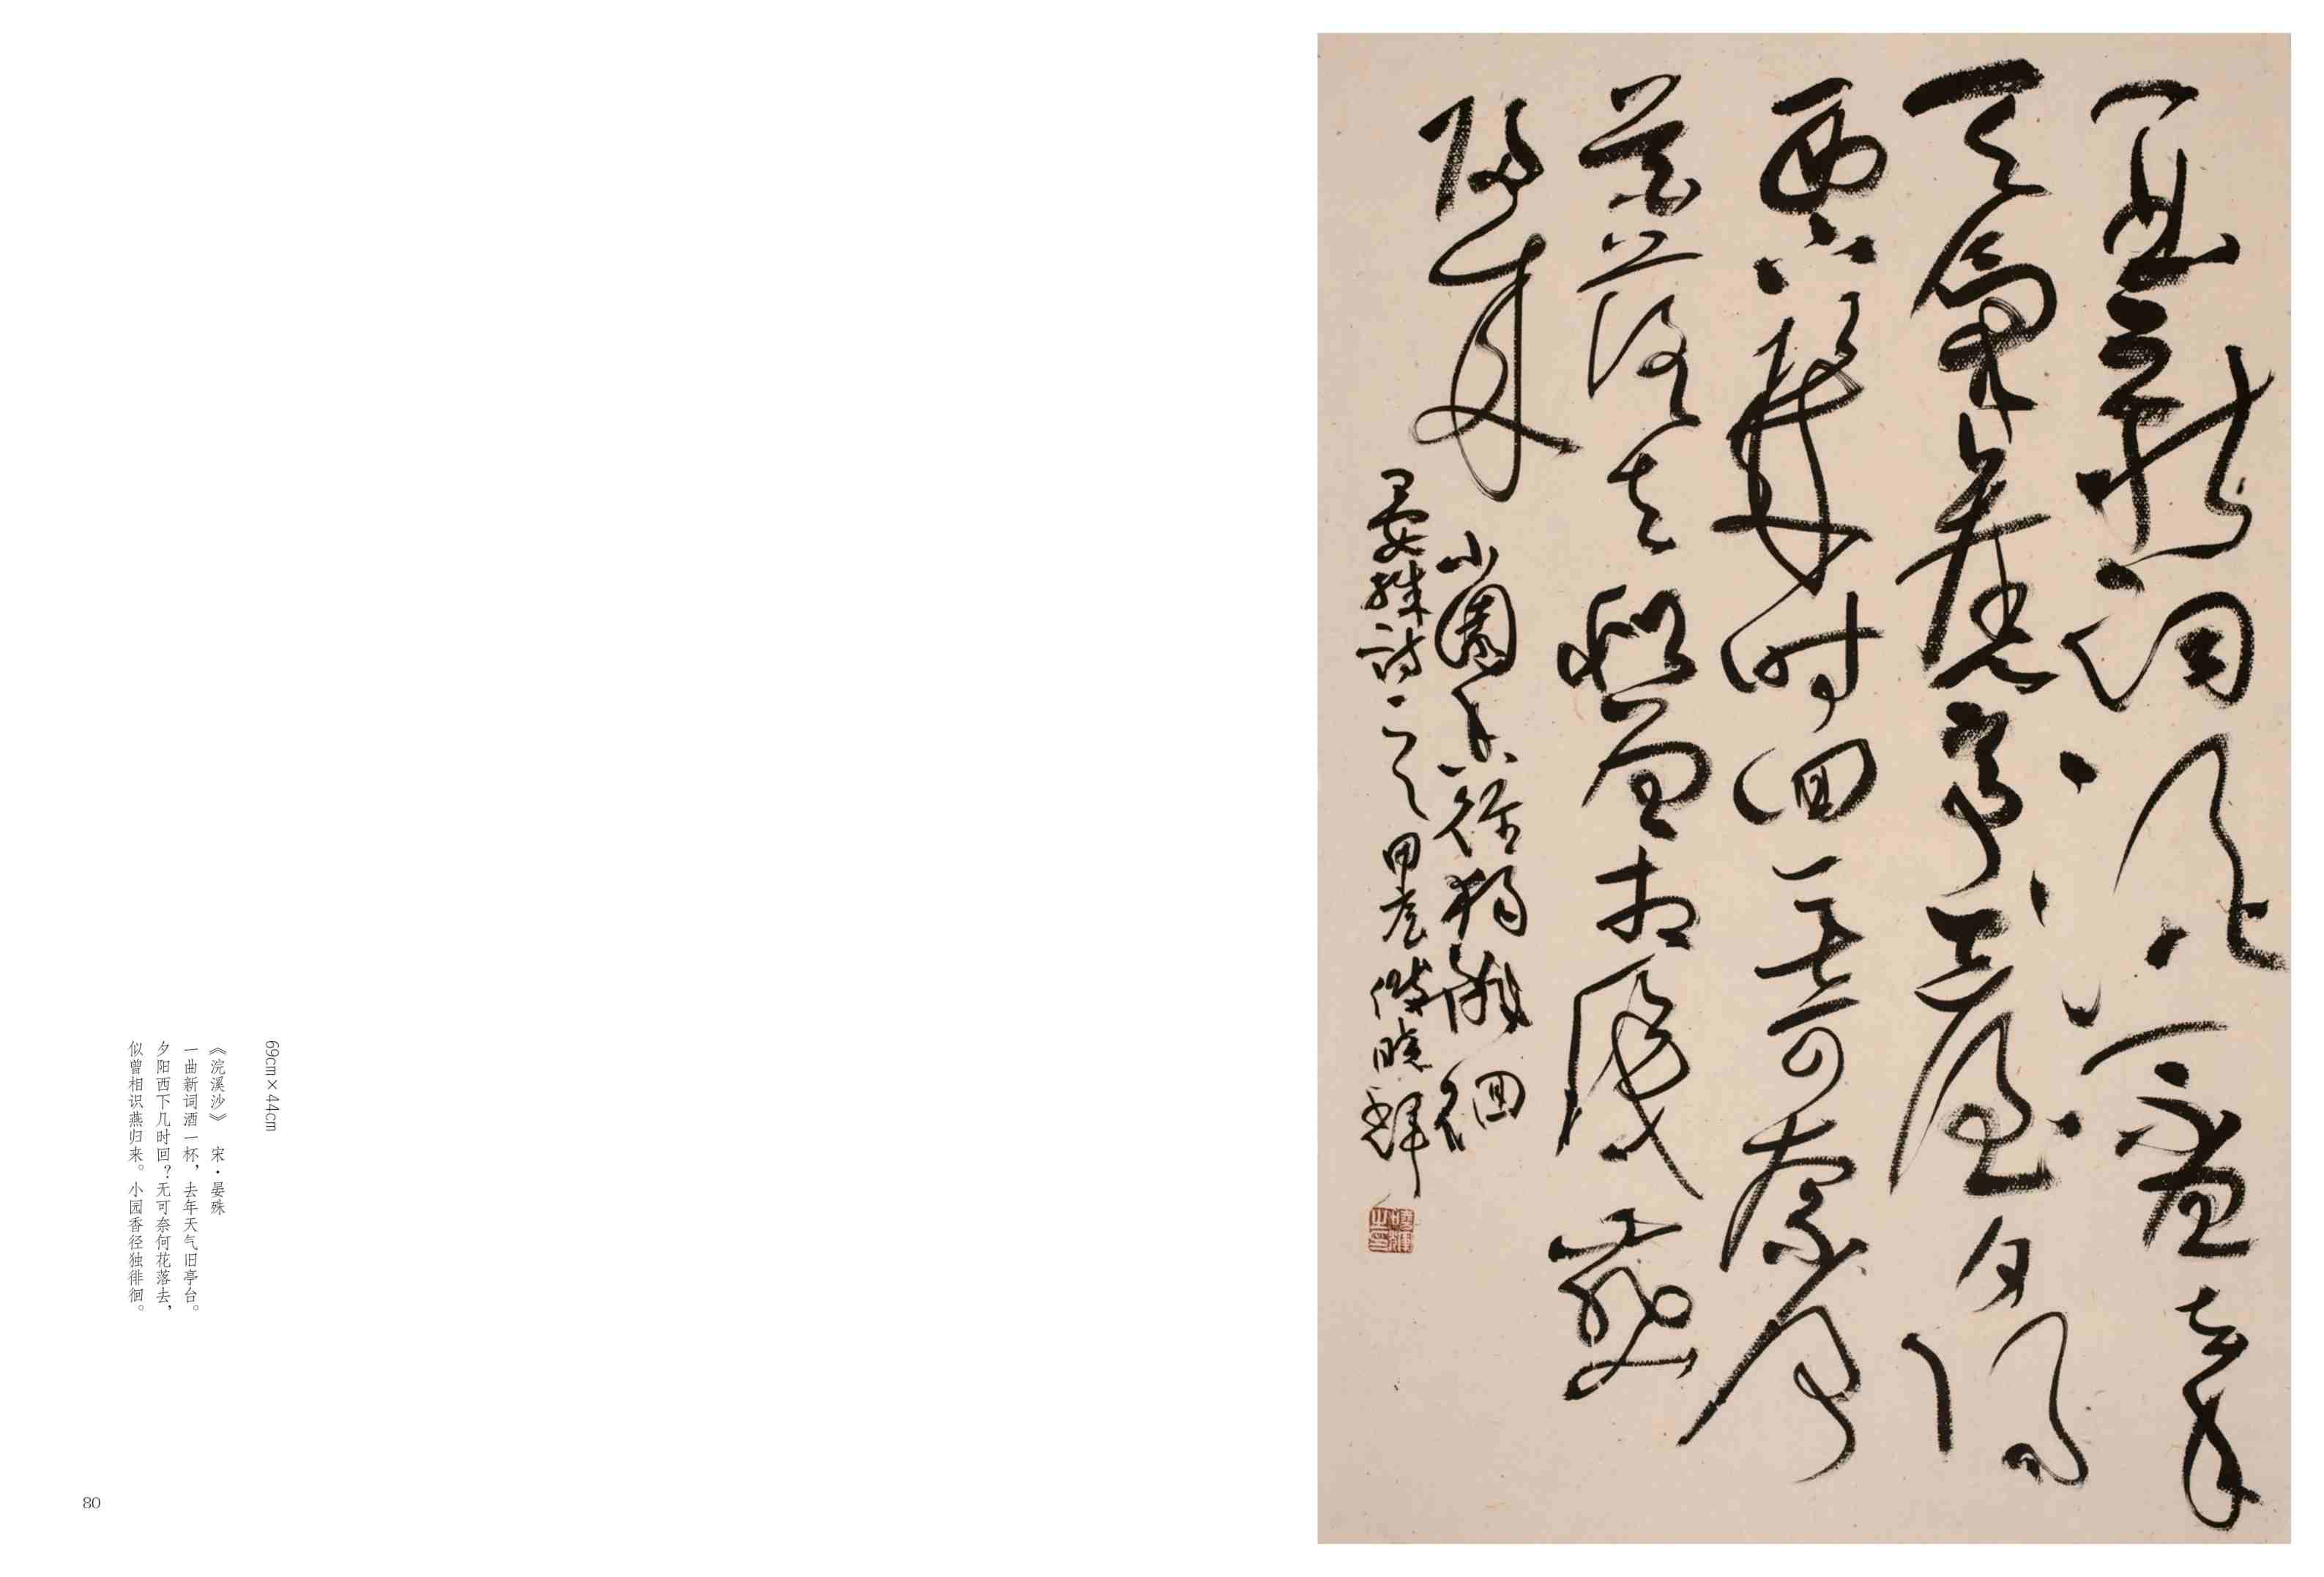 一曲新詞酒一盃去年
天氣舊亭臺夕陽
西下幾時回無可奈何
花落去似曾相識燕
歸來
小園香徑獨徘徊
晏殊詩 甲辰 曉輝
69cm×44cm
《浣溪沙》 宋·晏殊
一曲新词酒一杯，去年天气旧亭台。
夕阳西下几时回？无可奈何花落去，
似曾相识燕归来。小园香径独徘徊。
80